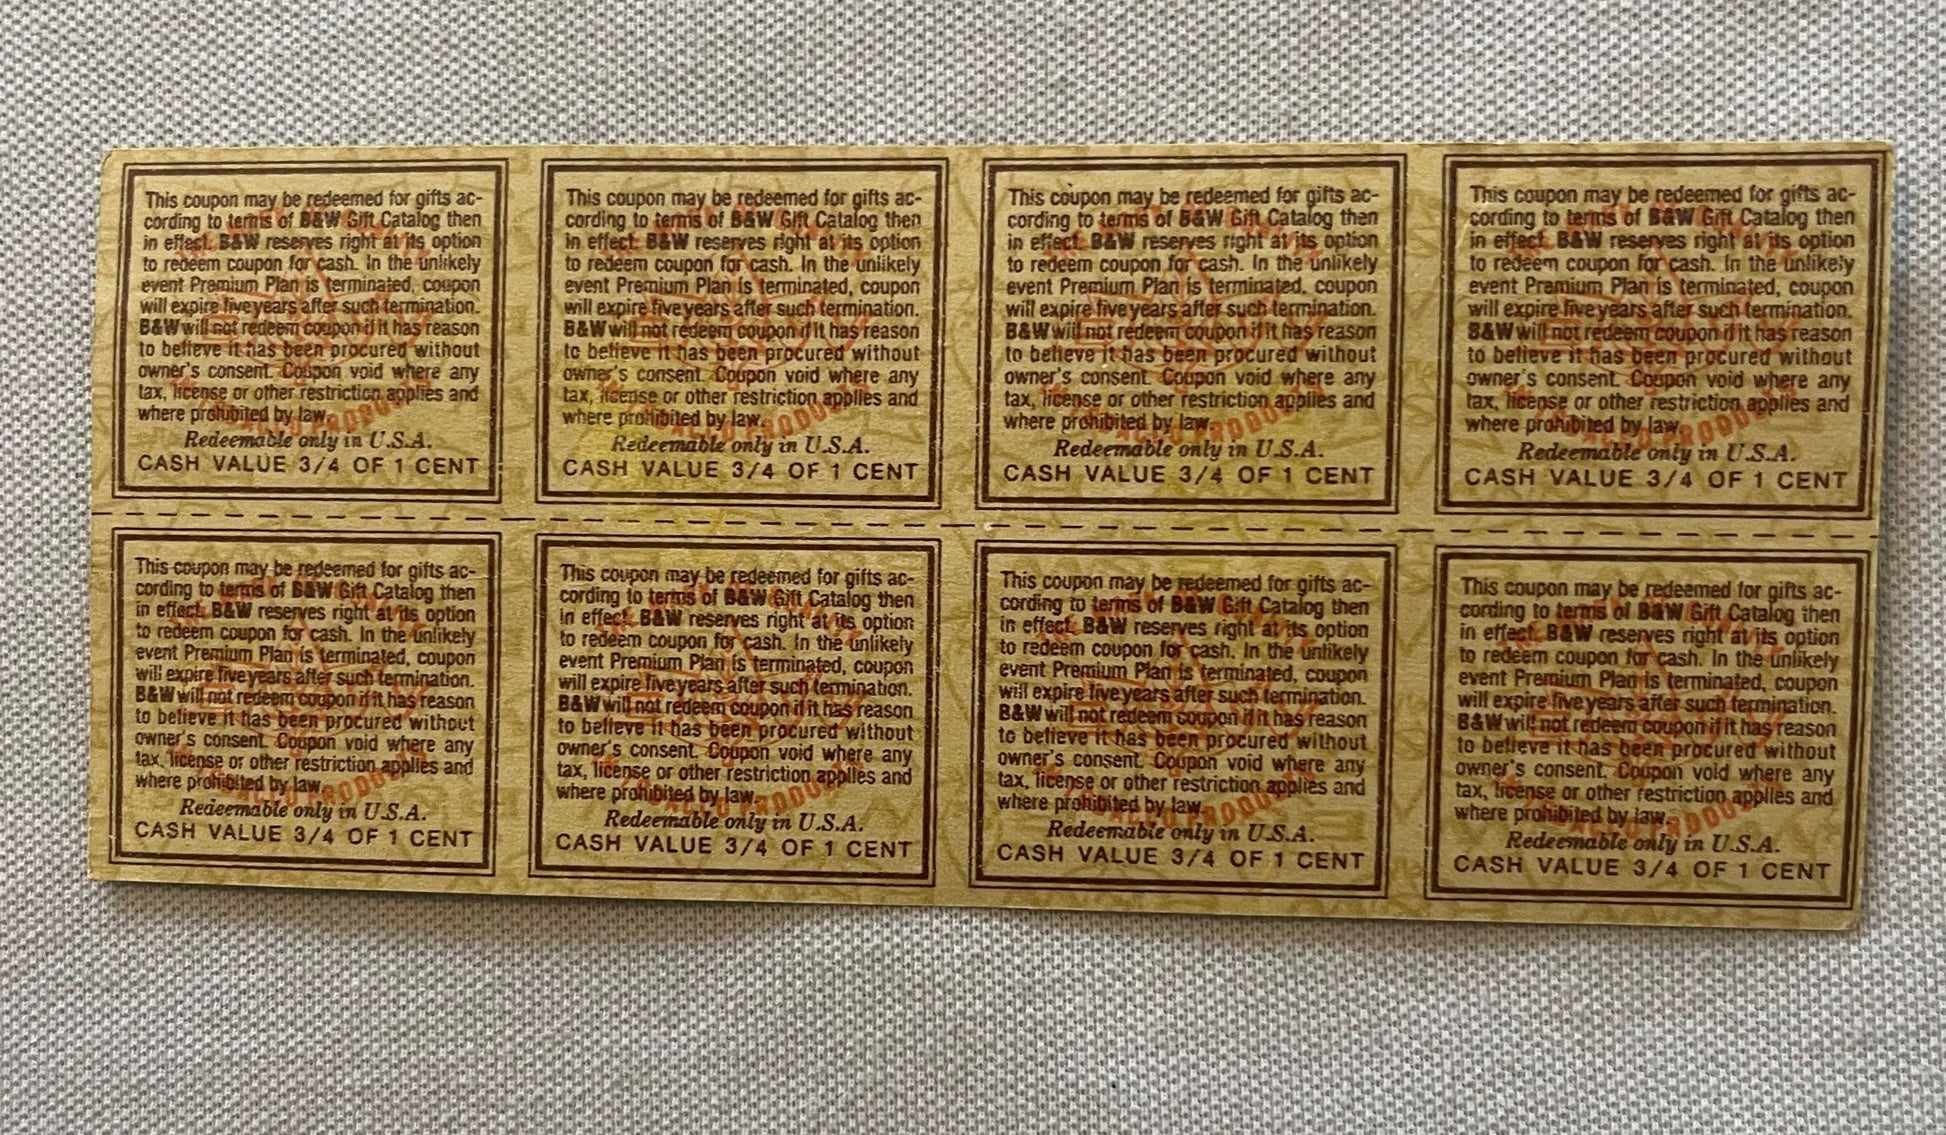 This coupon may be redeemed for gifts ac-
cording to terms of B&W Gift Catalog then
in effect. B&W reserves right at its option
to redeem coupon for cash. In the unlikely
event Premium Plan is terminated, coupon
will expire five years after such termination.
B&W will not redeem coupon if it has reason
to believe it has been procured without
owner's consent. Coupon void where any
tax, license or other restriction applies and
where prohibited by law.
Redeemable only in U.S.A.
CASH VALUE 3/4 OF 1 CENT
This coupon may be redeemed for gifts ac-
cording to terms of B&W Gift Catalog then
in effect. B&W reserves right at its option
to redeem coupon for cash. In the unlikely
event Premium Plan is terminated, coupon
will expire five years after such termination.
B&W will not redeem coupon if it has reason
to believe it has been procured without
owner's consent. Coupon void where any
tax, license or other restriction applies and
where prohibited by law.
Redeemable only in U.S.A.
CASH VALUE 3/4 OF 1 CENT
This coupon may be redeemed for gifts ac-
cording to terms of B&W Gift Catalog then
in effect. B&W reserves right at its option
to redeem coupon for cash. In the unlikely
event Premium Plan is terminated, coupon
will expire five years after such termination.
B&W will not redeem coupon if it has reason
to believe it has been procured without
owner's consent. Coupon void where any
tax, license or other restriction applies and
where prohibited by law.
Redeemable only in U.S.A.
CASH VALUE 3/4 OF 1 CENT
This coupon may be redeemed for gifts ac-
cording to terms of B&W Gift Catalog then
in effect. B&W reserves right at its option
to redeem coupon for cash. In the unlikely
event Premium Plan is terminated, coupon
will expire five years after such termination.
B&W will not redeem coupon if it has reason
to believe it has been procured without
owner's consent. Coupon void where any
tax, license or other restriction applies and
where prohibited by law.
Redeemable only in U.S.A.
CASH VALUE 3/4 OF 1 CENT
This coupon may be redeemed for gifts ac-
cording to terms of B&W Gift Catalog then
in effect. B&W reserves right at its option
to redeem coupon for cash. In the unlikely
event Premium Plan is terminated, coupon
will expire five years after such termination.
B&W will not redeem coupon if it has reason
to believe it has been procured without
owner's consent. Coupon void where any
tax, license or other restriction applies and
where prohibited by law.
Redeemable only in U.S.A.
CASH VALUE 3/4 OF 1 CENT
This coupon may be redeemed for gifts ac-
cording to terms of B&W Gift Catalog then
in effect. B&W reserves right at its option
to redeem coupon for cash. In the unlikely
event Premium Plan is terminated, coupon
will expire five years after such termination.
B&W will not redeem coupon if it has reason
to believe it has been procured without
owner's consent. Coupon void where any
tax, license or other restriction applies and
where prohibited by law.
Redeemable only in U.S.A.
CASH VALUE 3/4 OF 1 CENT
This coupon may be redeemed for gifts ac-
cording to terms of B&W Gift Catalog then
in effect. B&W reserves right at its option
to redeem coupon for cash. In the unlikely
event Premium Plan is terminated, coupon
will expire five years after such termination.
B&W will not redeem coupon if it has reason
to believe it has been procured without
owner's consent. Coupon void where any
tax, license or other restriction applies and
where prohibited by law.
Redeemable only in U.S.A.
CASH VALUE 3/4 OF 1 CENT
This coupon may be redeemed for gifts ac-
cording to terms of B&W Gift Catalog then
in effect. B&W reserves right at its option
to redeem coupon for cash. In the unlikely
event Premium Plan is terminated, coupon
will expire five years after such termination.
B&W will not redeem coupon if it has reason
to believe it has been procured without
owner's consent. Coupon void where any
tax, license or other restriction applies and
where prohibited by law.
Redeemable only in U.S.A.
CASH VALUE 3/4 OF 1 CENT